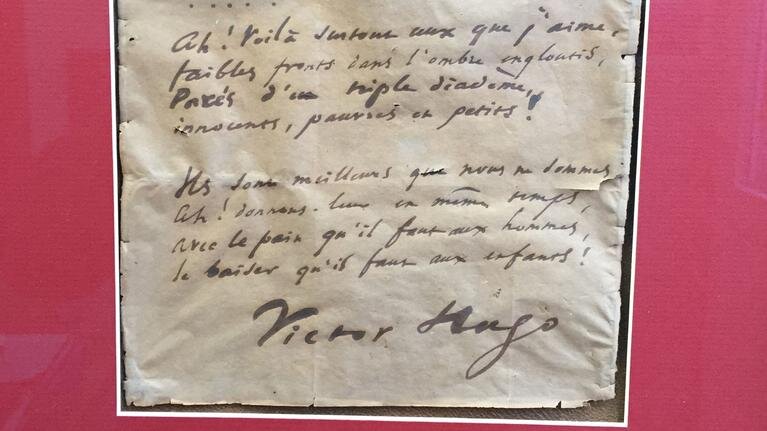 .....
Ah! Voilà surtout ceux que j'aime,
faibles fronts dans l'ombre engloutis,
Parés d'un triple diadème,
innocents, pauvres et petits!
Ils sont meilleurs que nous ne sommes.
Ah! donnons-leur en même temps,
avec le pain qu'il faut aux hommes,
le baiser qu'il faut aux enfants!
Victor Hugo